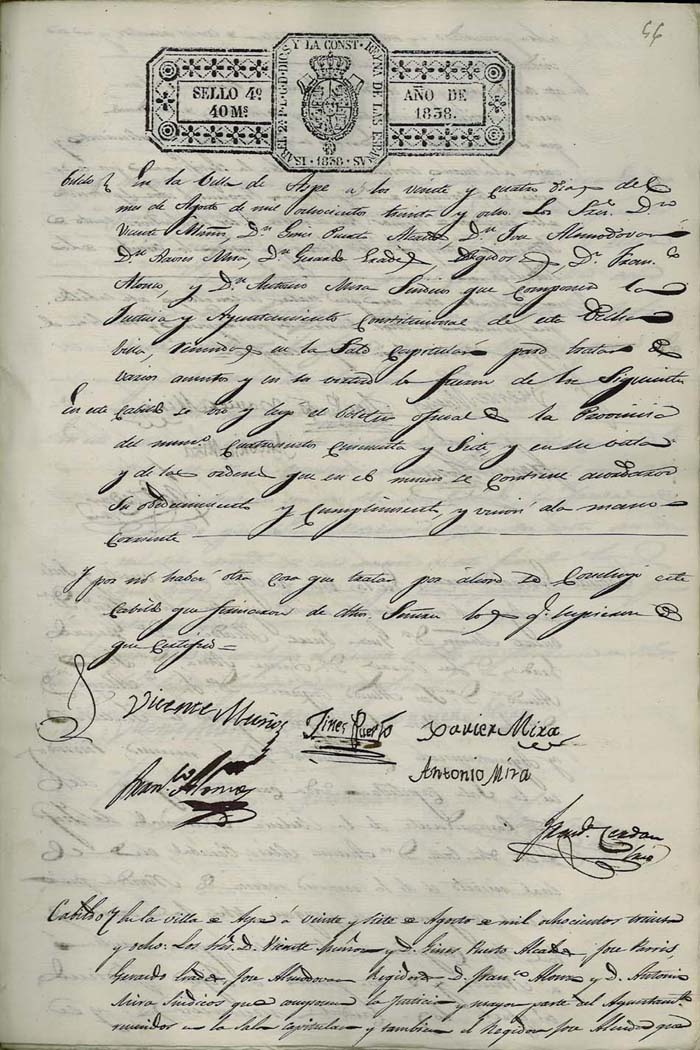 56
SELLO 4º
40 Ms
ISABEL 2ª P. L. G. D. DIOS Y LA CONST. REYNA DE LAS ESPAÑAS
· 1838 ·
AÑO DE
1838.
Cbildo En la Villa de Aspe a los veinte y cuatro dias del
mes de Agosto de mil ochocientos treinta y ocho. Los Sres. Dn
Vicente Muñoz, Dn Gines Puerto Alcaldes, Dn Jose Almodovar
Dn Xavier Mira, Dn Gerardo Regidores, Dn Franco
Alonso, y Dn Antonio Mira Sindicos que componen la
Justicia y Ayuntamiento Constitucional de esta Dicha
Villa, reunidos en la Sala Capitular para tratar de
varios asuntos y en su virtud lo fueron de los Siguientes
En este Cabildo se vio y leyo el boletin oficial de la Provincia
del numo cuatrocientos cincuenta y Siete y en su vista
y de las ordenes que en el mismo se contiene acordaron
Su obedecimiento y cumplimiento, y union a la mano
corriente
Y por no haber otra cosa que tratar por ahora se Concluyó este
Cabildo que firmaron de dhos. Señores los q. supieron de
que certifico =
Vicente Muñoz Jines Puerto Xavier Mira
Franco Alonso Antonio Mira
Franco Cerdan
Srio
Cabildo En la villa de Aspe á veinte y siete de Agosto de mil ochocientos treinta
y ocho: Los Srs. D. Vicente Muñoz y D. Gines Puerto Alcaldes, Jose
Gerardo Jose Almodovar Regidores, D. Franco Alonso y D. Antonio
Mira Sindicos que componen la Justicia y mayor parte del Ayuntamto
reunidos en la Sala capitular y tambien el Regidor Jose Almodovar